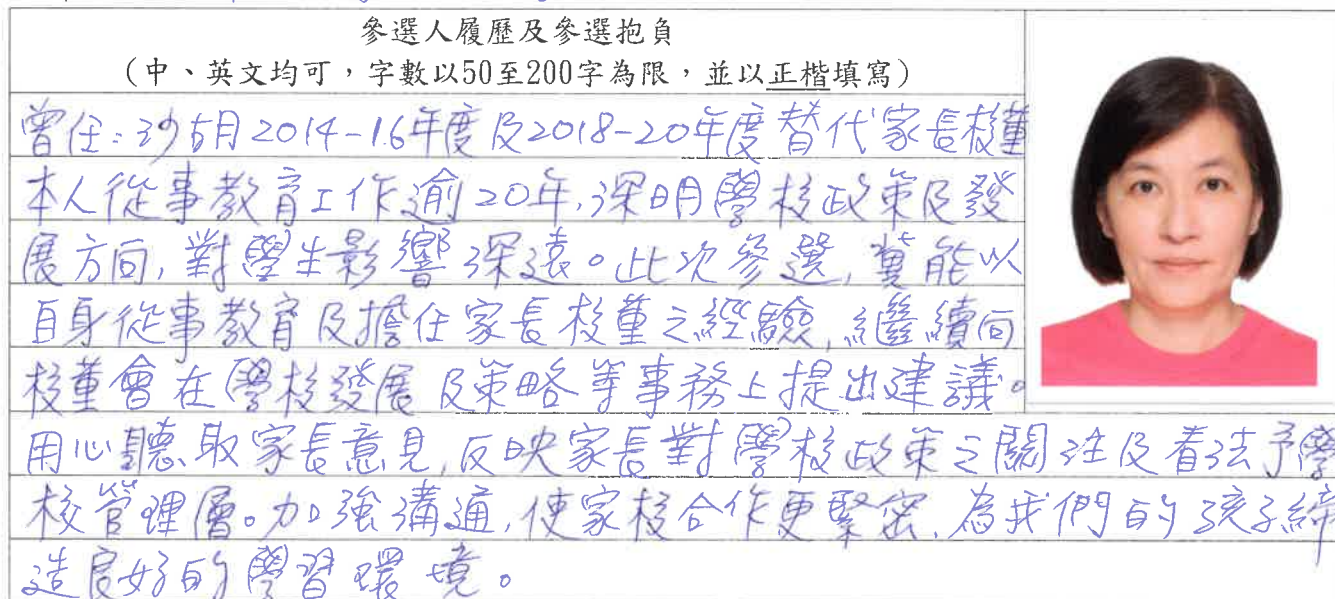 參選人履歷及參選抱負
(中、英文均可，字數以50至200字為限，並以正楷填寫)
曾任：沙官月2014-16年度及2018-20年度替代家長校董
本人從事教育工作逾20年，深明學校政策及發
展方向，對學生影響深遠。此次參選，冀能以
自身從事教育及擔任家長校董之經驗，繼續向
校董會在學校發展及策略等事務上提出建議。
用心聽取家長意見，反映家長對學校政策之關注及看法予學
校管理層。加強溝通，使家校合作更緊密，為我們的孩子締
造良好的學習環境。